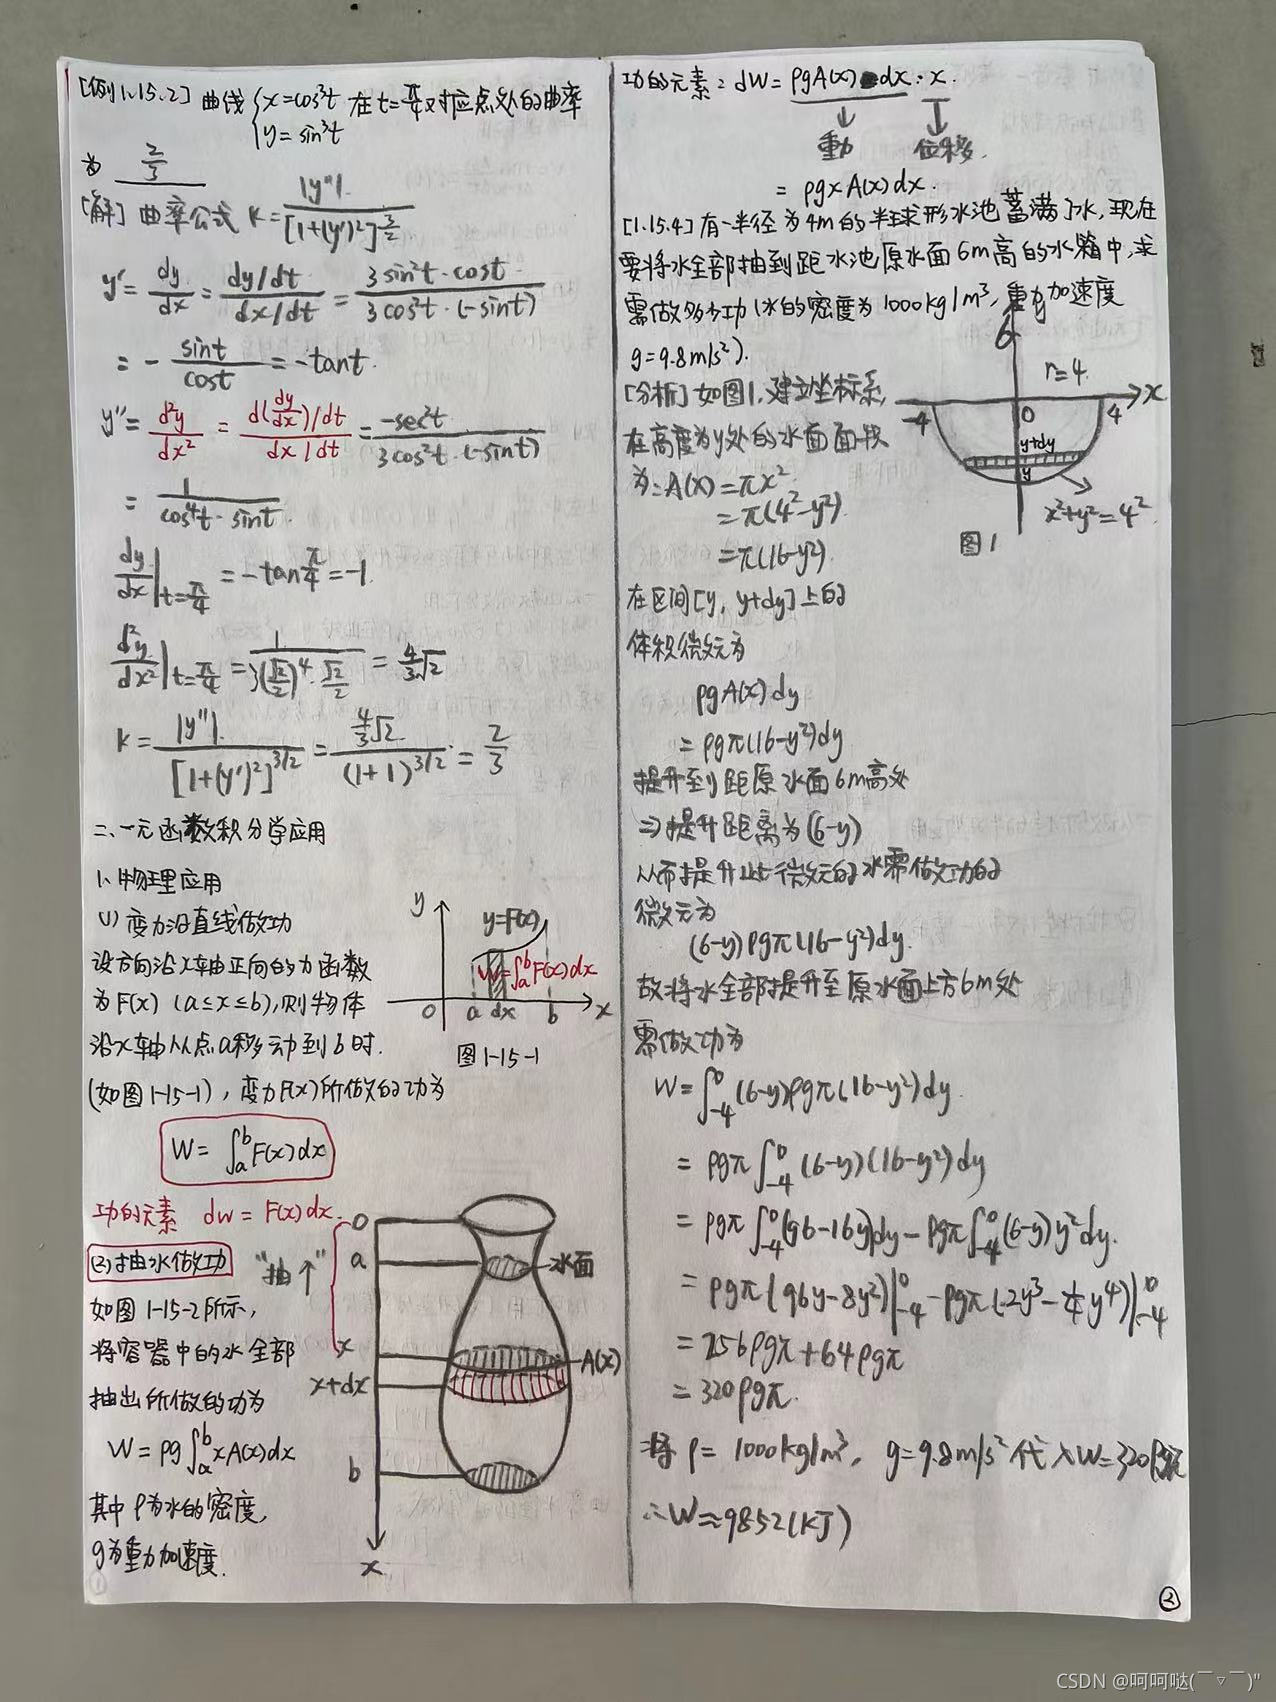 [例1.15.2] 曲线 { x=cos³t 在t=π/4对应点处的曲率
y=sin³t
为 2/3
[解] 曲率公式 K= |y''| / [1+(y')²]^{3/2}
y'= dy/dx = (dy/dt)/(dx/dt) = (3sin²t·cost)/(3cos²t·(-sint))
= - sint/cost = -tant.
y''= d²y/dx² = (d(dy/dx)/dt)/(dx/dt) = (-sec²t)/(3cos²t·(-sint))
= 1/(cos⁴t·sint)
dy/dx|t=π/4 = -tanπ/4 = -1.
d²y/dx²|t=π/4 = 1/(3(√2/2)⁴·√2/2) = 4/3√2
K= |y''|/[1+(y')²]^{3/2} = (4/3√2)/(1+1)^{3/2} = 2/3
二、一元函数积分学应用
1、物理应用
(1) 变力沿直线做功
设方向沿x轴正向的力函数
为F(x) (a≤x≤b),则物体
沿x轴从点a移动到b时.
(如图1-15-1), 变力F(x)所做的功为
y
y=F(x)
W=∫ₐᵇF(x)dx
0 a dx b x
图1-15-1
W= ∫ₐᵇF(x)dx
功的元素 dw=F(x)dx.
(2)抽水做功 "抽↑"
如图1-15-2所示,
将容器中的水全部
抽出所做的功为
W=ρg∫ₐᵇxA(x)dx
其中ρ为水的密度,
g为重力加速度.
0
a
水面
x
A(x)
x+dx
b
x
1
功的元素: dW=ρgA(x)dx·x.
重力 位移.
= ρgxA(x)dx.
[1.15.4] 有一半径为4m的半球形水池蓄满了水,现在
要将水全部抽到距水池原水面6m高的水箱中,求
需做多少功 (水的密度为1000kg/m³, 重力加速度
g=9.8m/s²).
[分析] 如图1,建立坐标系,
在高度为y处的水面面积
为:A(x)=πx²
=π(4²-y²).
=π(16-y²).
y
6
r=4.
x
-4 0 4
y+dy
y
x²+y²=4²
图1
在区间[y, y+dy]上的
体积微元为
ρgA(x)dy
=ρgπ(16-y²)dy
提升到距原水面6m高处
⇒提升距离为(6-y)
从而提升此微元的水需做功的
微元为
(6-y)ρgπ(16-y²)dy.
故将水全部提升至原水面上方6m处
需做功为
W=∫₋₄⁰(6-y)ρgπ(16-y²)dy.
= ρgπ∫₋₄⁰(6-y)(16-y²)dy
= ρgπ∫₋₄⁰(96-16y)dy-ρgπ∫₋₄⁰(6-y)y²dy.
= ρgπ(96y-8y²)|₋₄⁰-ρgπ(2y³-¼y⁴)|₋₄⁰
= 256ρgπ+64ρgπ
= 320ρgπ.
将ρ=1000kg/m³, g=9.8m/s²代入W=320ρgπ
∴W≈9852(KJ)
2
CSDN @呵呵哒(￣▽￣)"